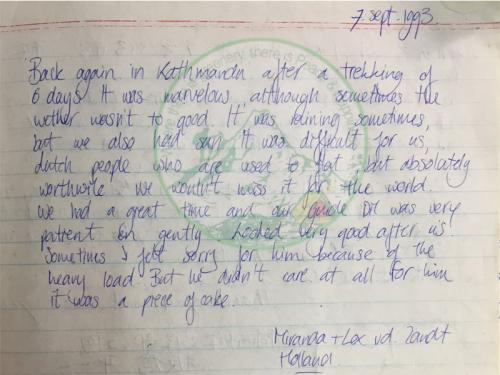 7 sept. 1993
Back again in Kathmandu after a trekking of
6 days. It was marvelous although sometimes the
wether wasn't to good. It was raining sometimes,
but we also had sun. It was difficult for us,
dutch people who are used to flat, but absolutely
worthwile. We wouldn't miss it for the world.
We had a great time and our guide was very
patient en gently. Looked very good after us.
Sometimes I felt sorry for him because of the
heavy load. But he didn't care at all for him
it was a piece of cake.
Miranda + Lex vd. Zandt
Holland